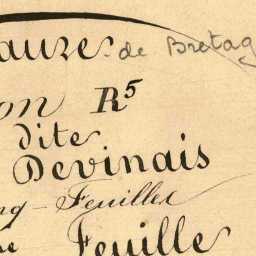 auzes de Bretag
on R5
dite
Devinais
nq-Feuilles
se Feuille